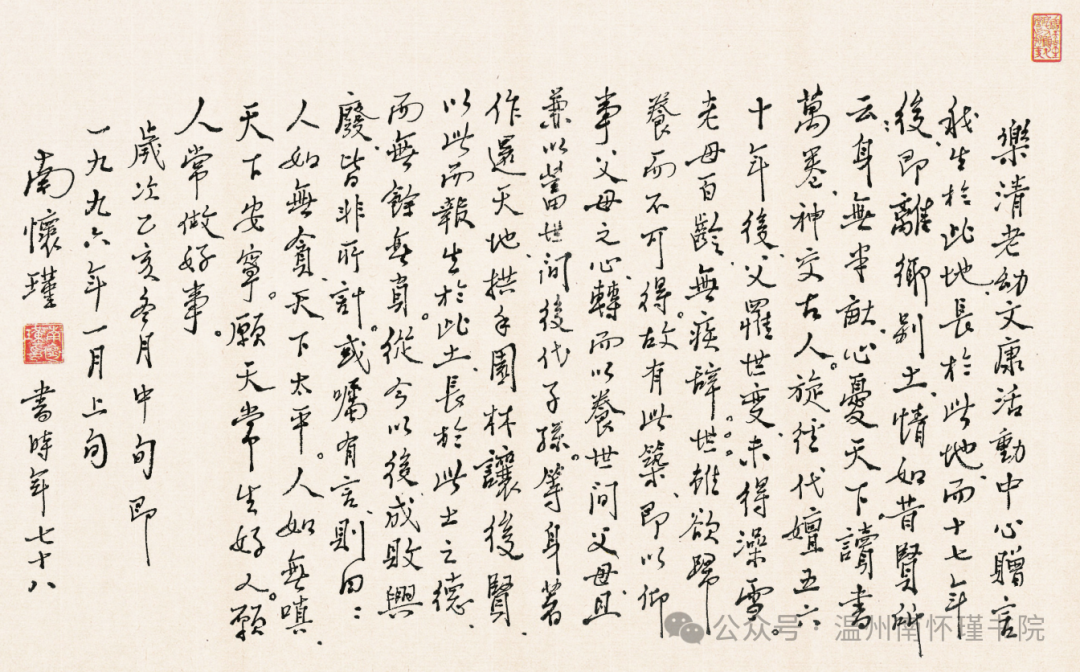 樂清老幼文康活動中心贈言
我生於此地、長於此地、而十七年
後、即離鄉別土、情如昔賢所
云：身無半畝、心憂天下、讀書
萬卷、神交古人。旋經代嬗五六
十年後、父罹世變、未得澡雪。
老母百齡、無疾辭世。雖欲歸
養而不可得。故有此築、即以仰
事父母之心、轉而以養世間父母、且
兼以蓄世間後代子孫。等身著
作還天地、拱手園林讓後賢、
以此而報生於此土、長於此土之德、
而無餘無負。從今以後、成敗興
廢、皆非所計。或囑有言、則曰：
人如無貪、天下太平。人如無嗔、
天下安寧。願天常生好人。願
人常做好事。
歲次乙亥冬月中旬即
一九九六年一月上旬
南懷瑾
書時年七十八
公众号·温州南怀瑾书院